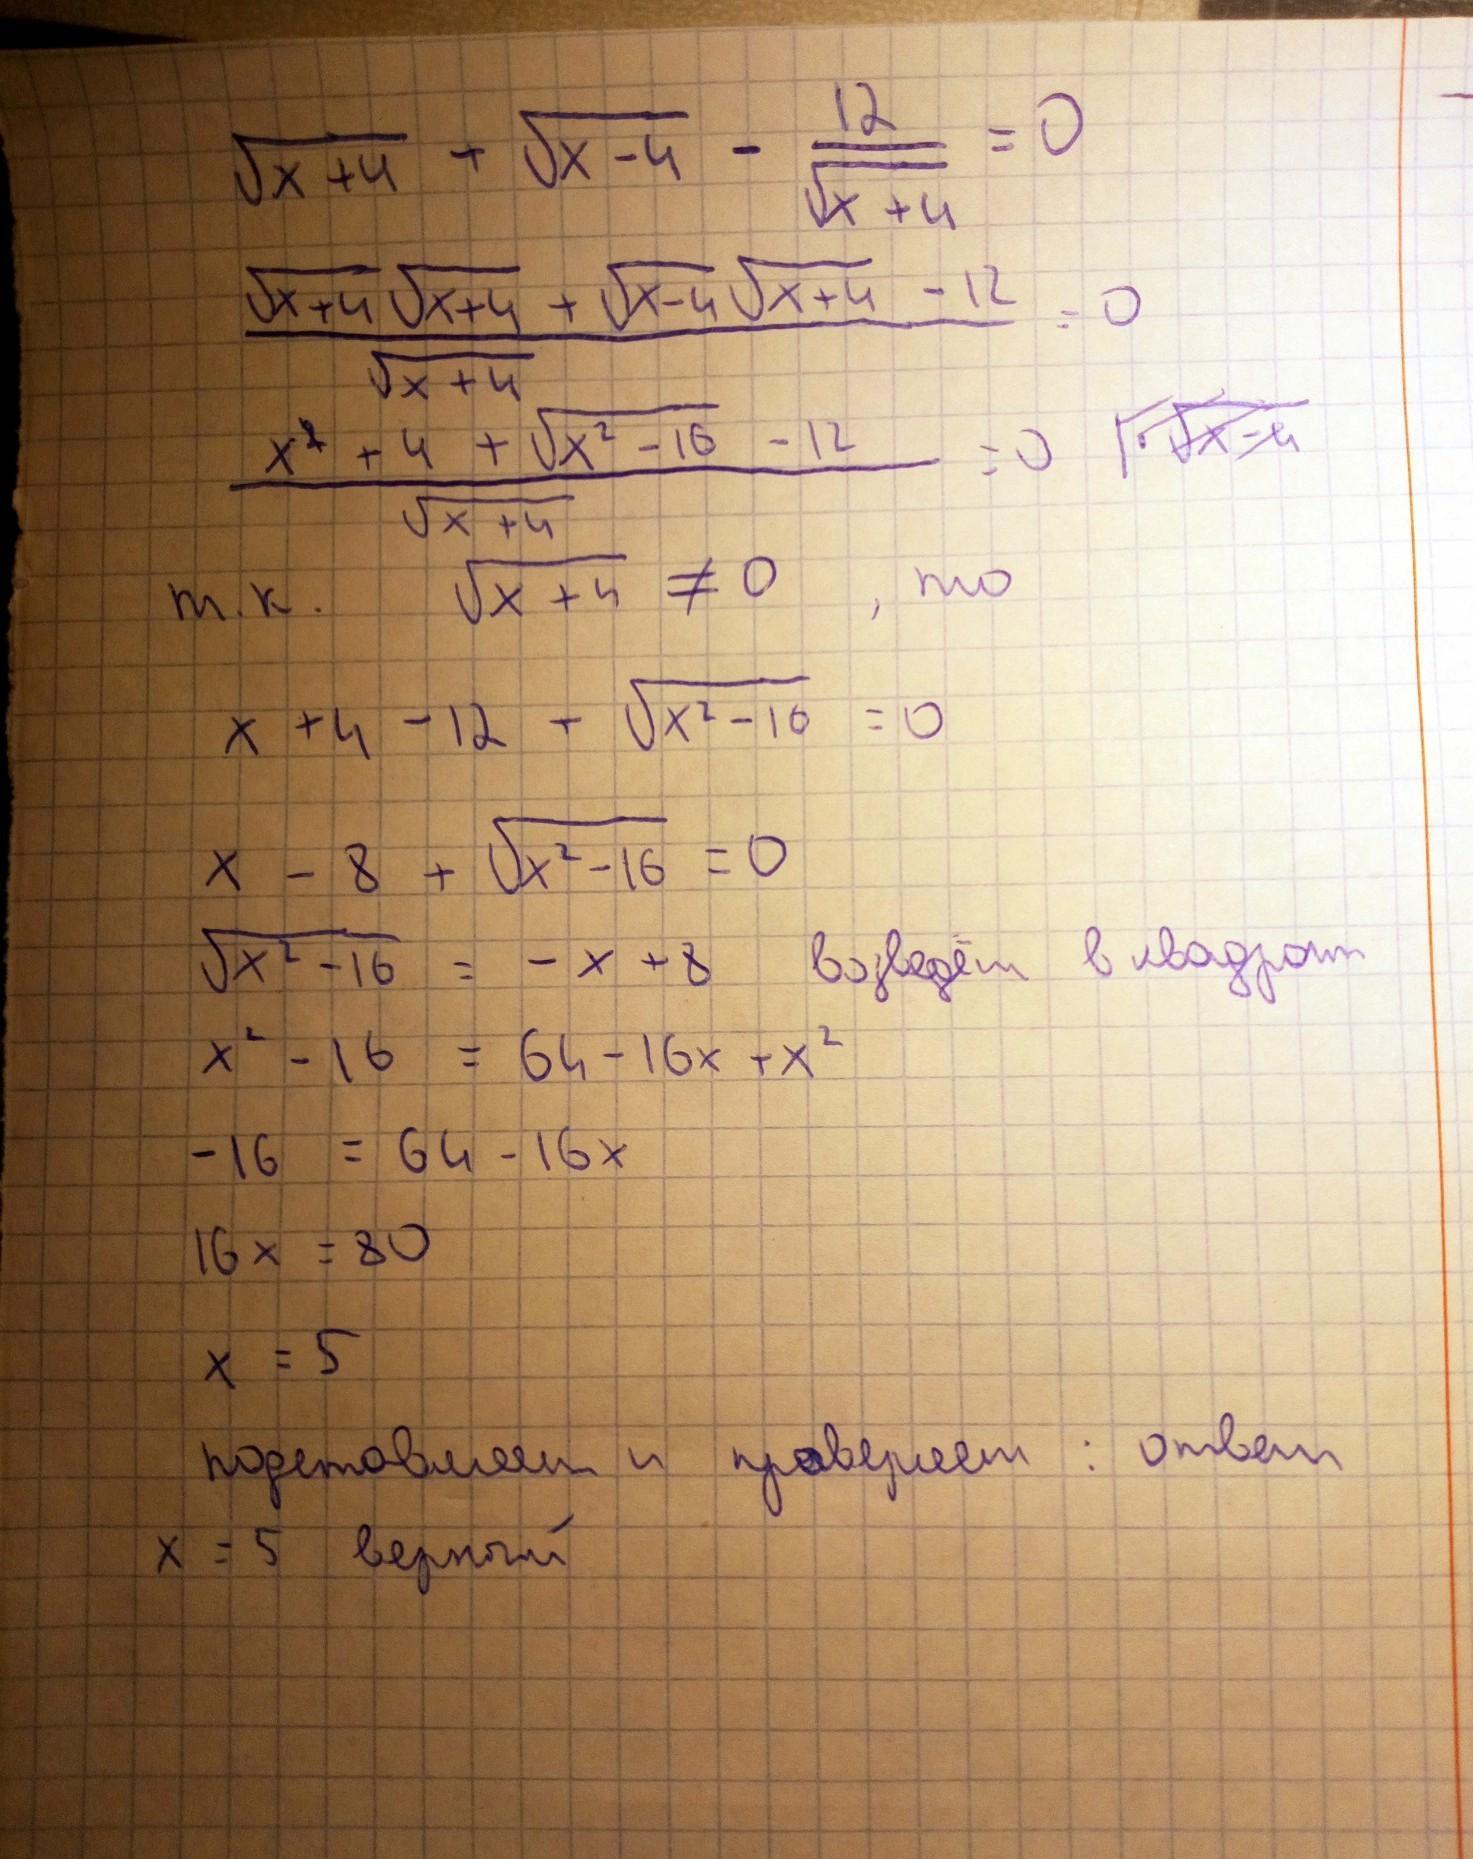 √(x+4) + √(x-4) - 12/√(x+4) = 0
(√(x+4) √(x+4) + √(x-4) √(x+4) - 12)/√(x+4) = 0
(x + 4 + √(x² - 16) - 12)/√(x+4) = 0
т.к. √(x+4) ≠ 0 , то
x + 4 - 12 + √(x² - 16) = 0
x - 8 + √(x² - 16) = 0
√(x² - 16) = - x + 8 возведём в квадрат
x² - 16 = 64 - 16x + x²
-16 = 64 - 16x
16x = 80
x = 5
подставляем и проверяем : ответ
x = 5 верный